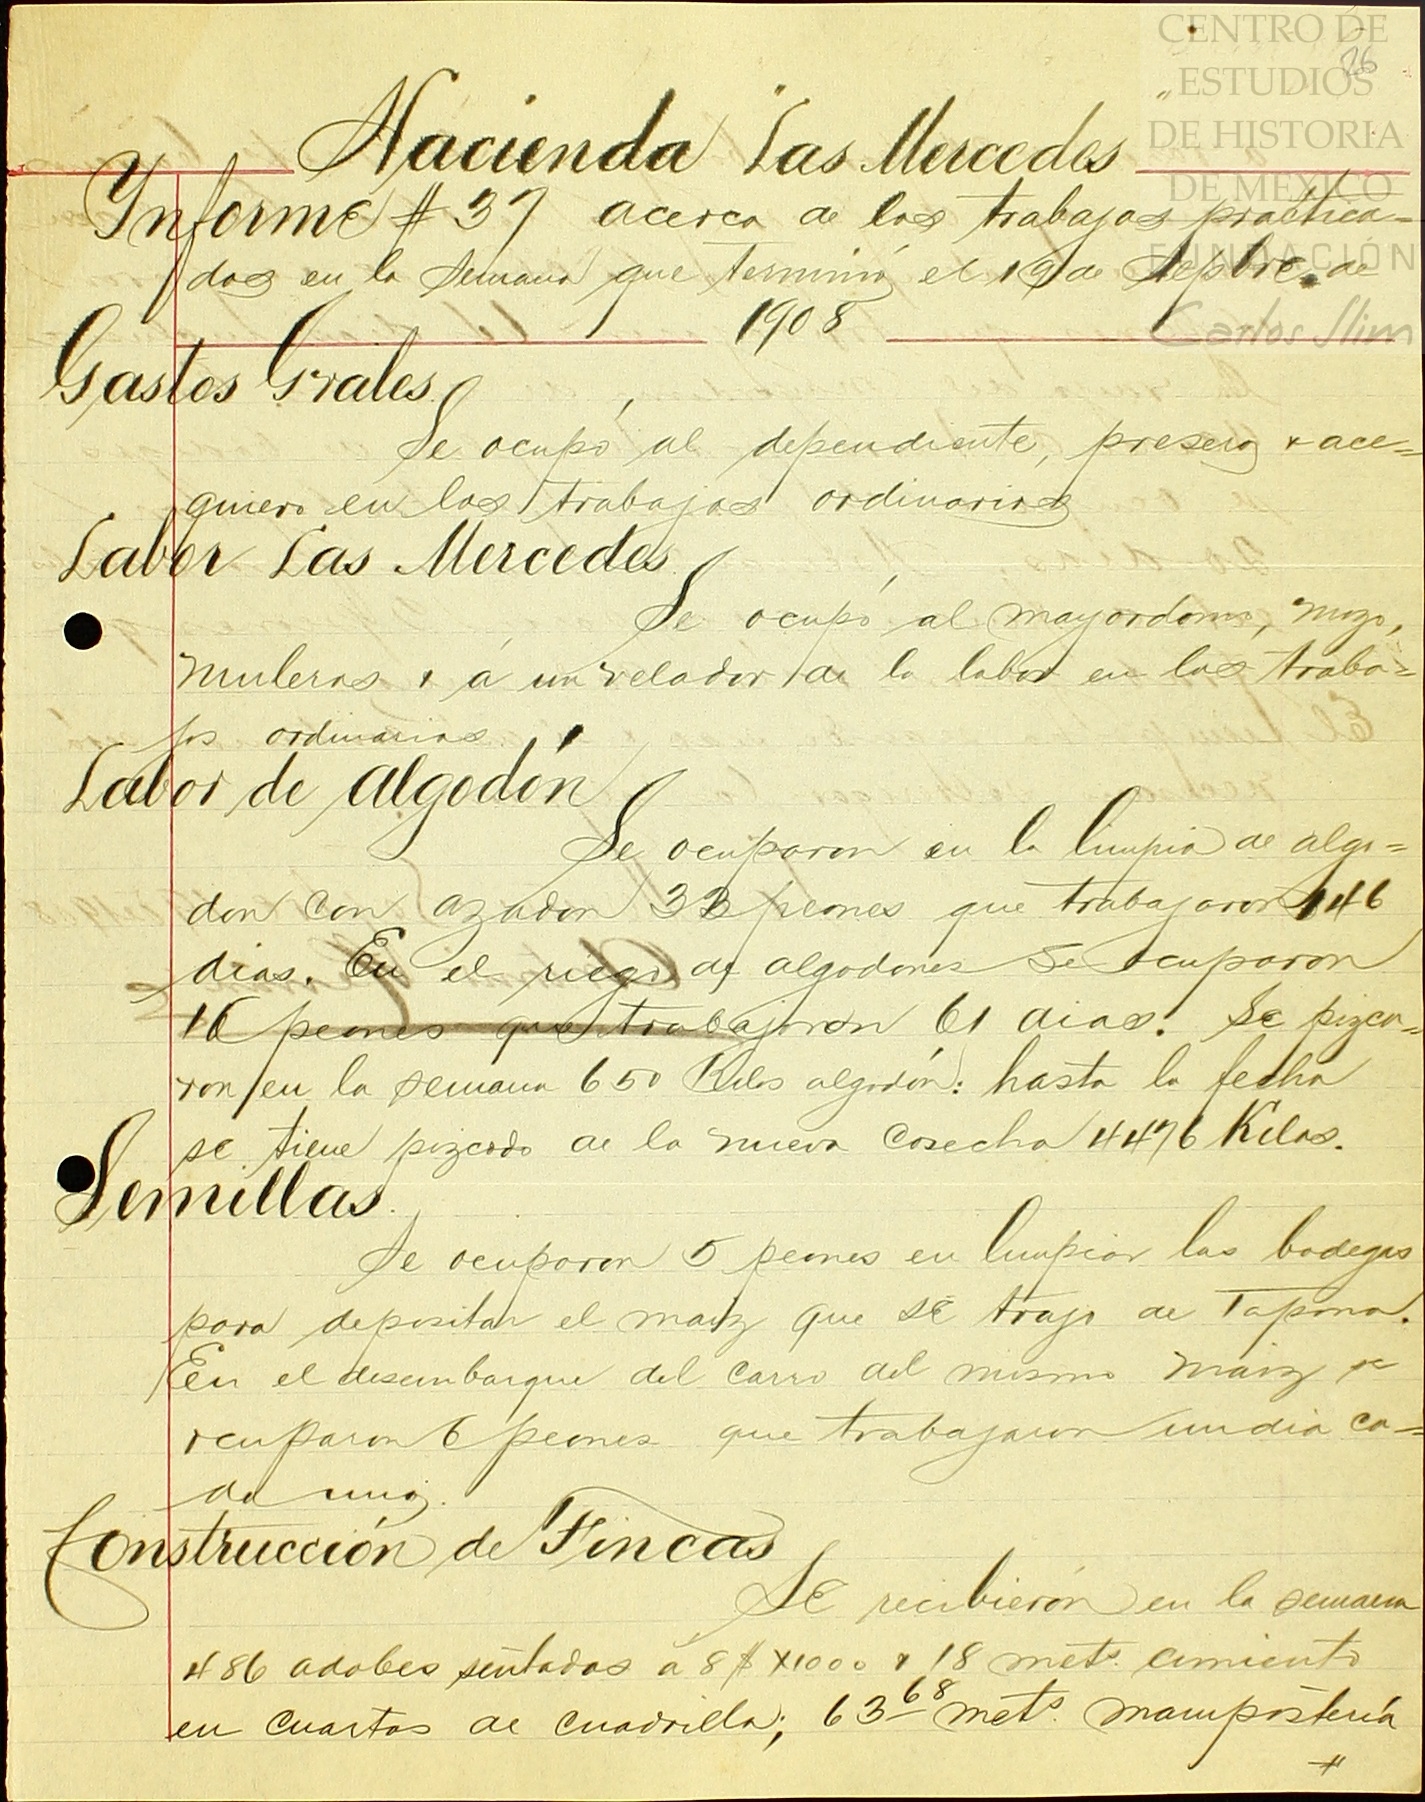 CENTRO DE
ESTUDIOS
DE HISTORIA
DE MÉXICO
FUNDACIÓN
Carlos Slim
86
Hacienda "Las Mercedes"
Informe # 37 acerca de los trabajos practica=
dos en la semana que terminó el 19 de Sepbre. de
1908
Gastos Grales.
Se ocupó al dependiente, presero y ace=
quiero en los trabajos ordinarios
Labor Las Mercedes
Se ocupó al mayordomo, mozo,
muleros y á un velador de la labor en los traba=
jos ordinarios.
Labor de algodón
Se ocuparon en la limpia de algo=
don con azadon 33 peones que trabajaron 146
dias. En el riego de algodones se ocuparon
16 peones que trabajaron 61 dias. Se pizca=
ron en la semana 650 Kilos algodón: hasta la fecha
se tiene pizcado de la nueva cosecha 4476 Kilos.
Semillas.
Se ocuparon 5 peones en limpiar las bodegas
para depositar el maiz que se trajo de Tapona.
En el desembarque del carro del mismo maiz se
ocuparon 6 peones que trabajaron un dia ca=
da uno.
Construcción de Fincas
Se recibierón en la semana
486 adobes sentados á 8 $ X 1000 y 18 mets. cimiento
en cuartos de cuadrilla; 63 68 mets. mampostería
#